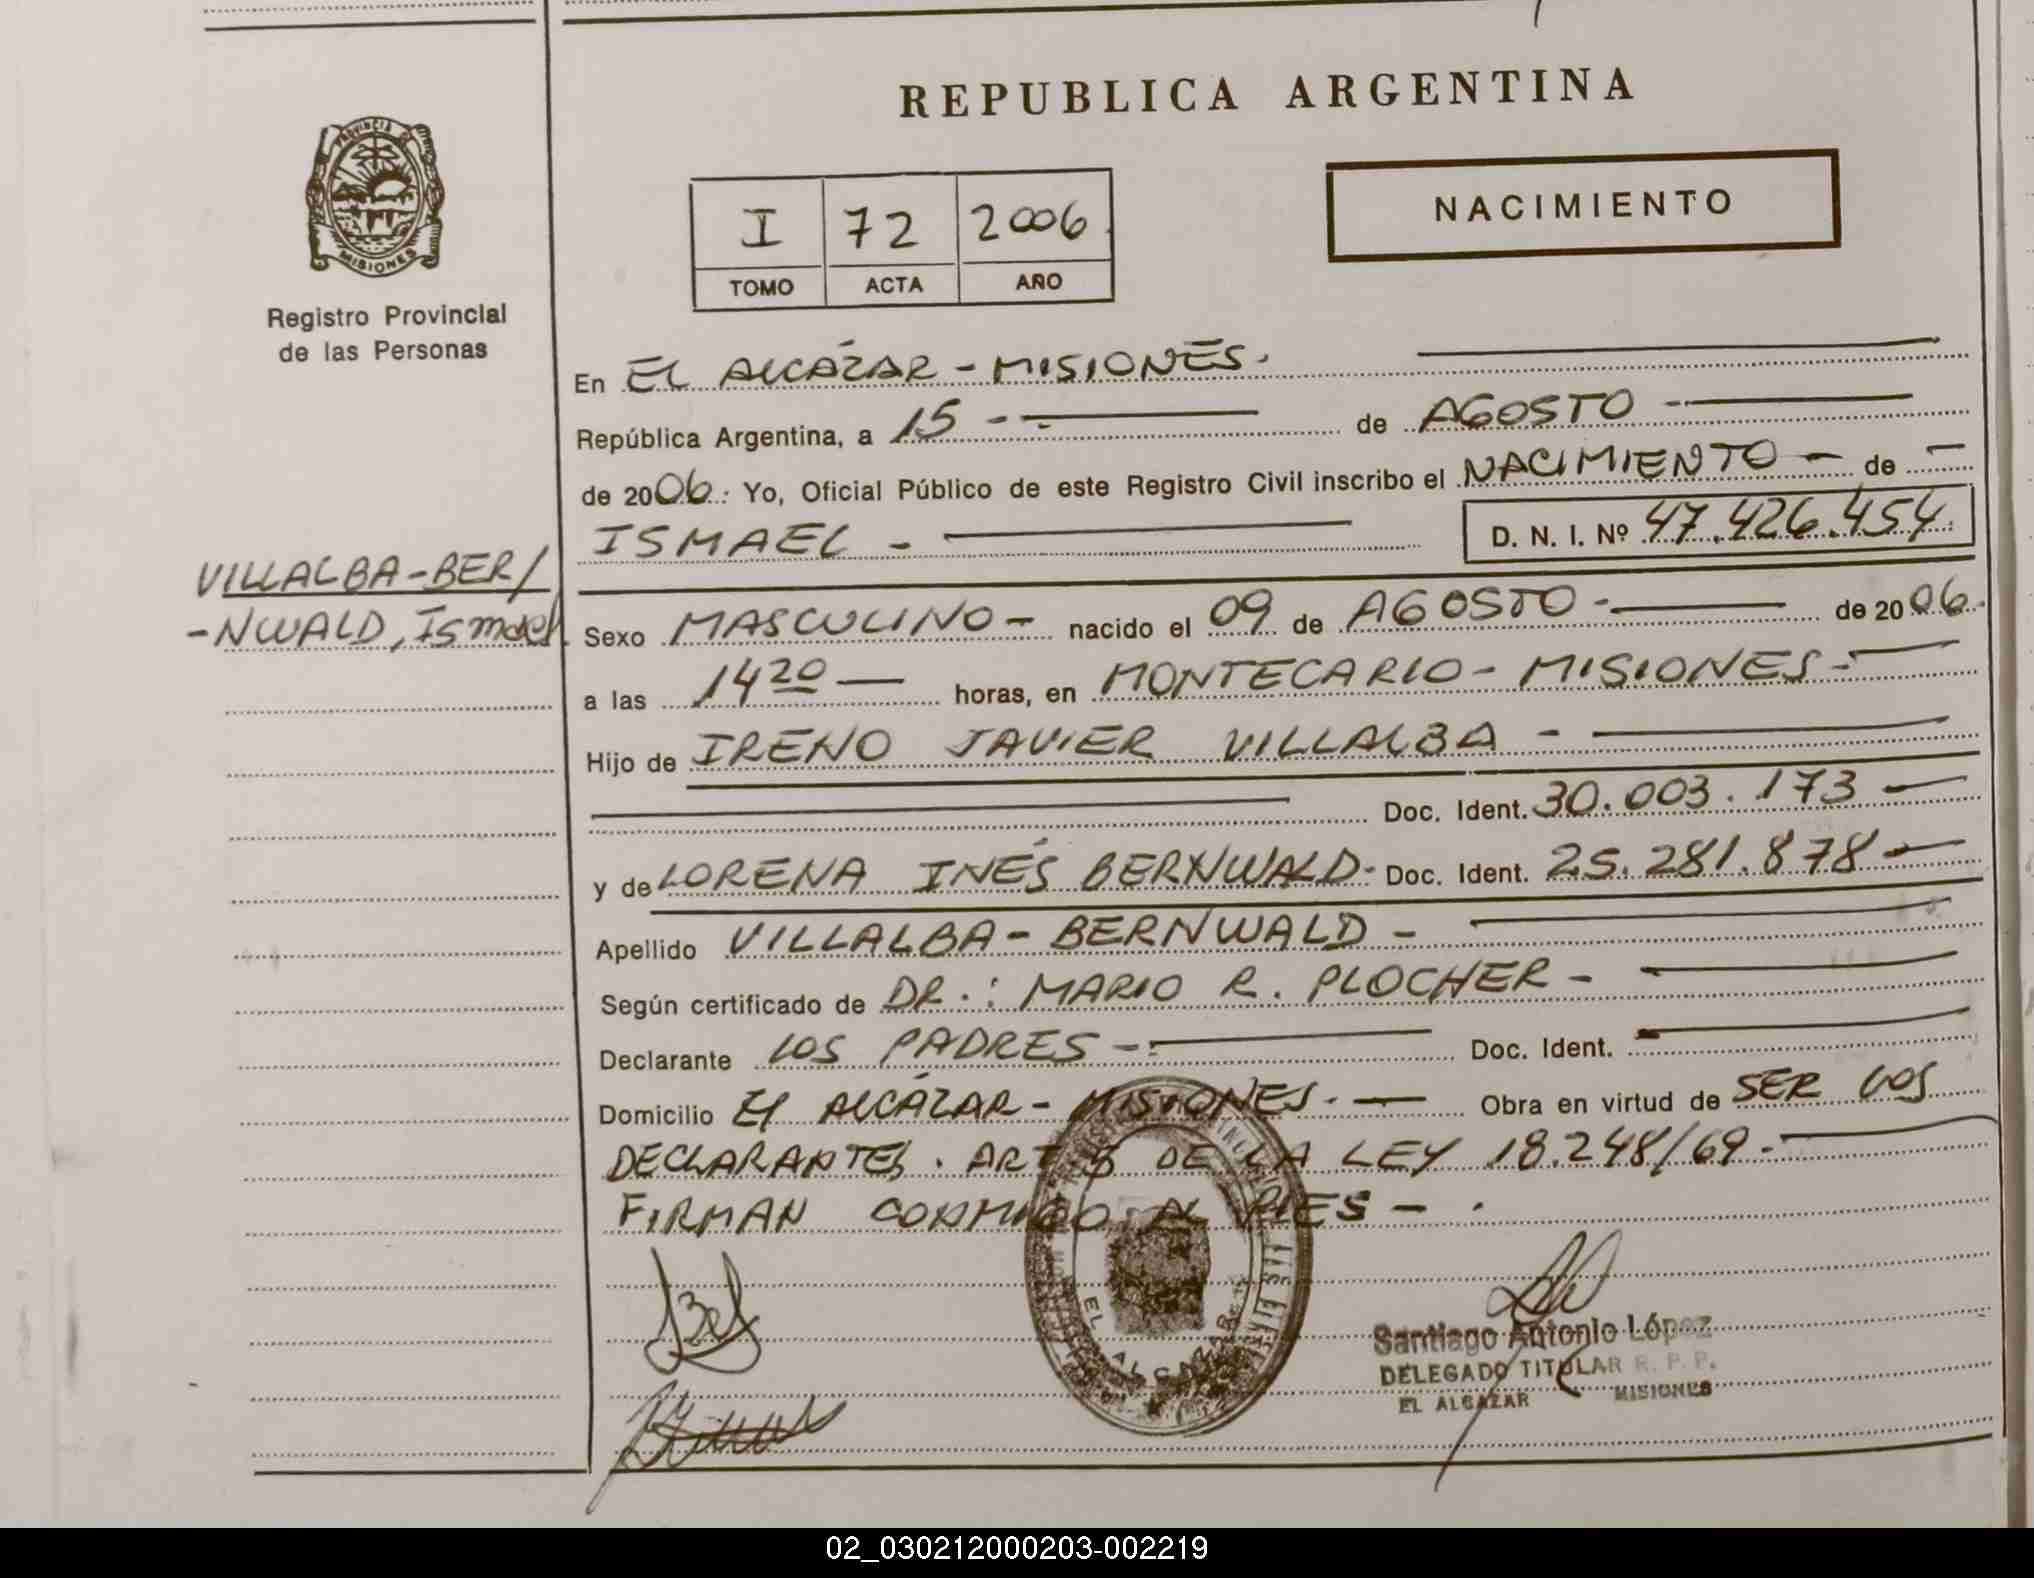 REPUBLICA ARGENTINA
PROVINCIA DE
MISIONES
Registro Provincial
de las Personas
I 72 2006
TOMO ACTA AÑO
NACIMIENTO
En EL ALCÁZAR - MISIONES.
República Argentina, a 15 - de AGOSTO -
de 2006. Yo, Oficial Público de este Registro Civil inscribo el NACIMIENTO - de -
ISMAEL - D. N. I. Nº 47.426.454
VILLALBA-BER/
-NWALD, Ismael.
Sexo MASCULINO - nacido el 09 de AGOSTO - de 2006.
a las 14 20 - horas, en MONTECARLO - MISIONES -
Hijo de IRENO JAVIER VILLALBA -
Doc. Ident. 30.003.173 -
y de LORENA INÉS BERNWALD - Doc. Ident. 25.281.878 -
Apellido VILLALBA - BERNWALD -
Según certificado de DR.: MARIO R. PLOCHER -
Declarante LOS PADRES - Doc. Ident.
Domicilio El ALCÁZAR - MISIONES. - Obra en virtud de SER LOS
DECLARANTES. ART 5 DE LA LEY 18.248/69.-
FIRMAN CONMIGO AL PIES -.
EL ALCAZAR
Santiago Antonio López
DELEGADO TITULAR R. P. P.
EL ALCAZAR MISIONES
02_030212000203-002219